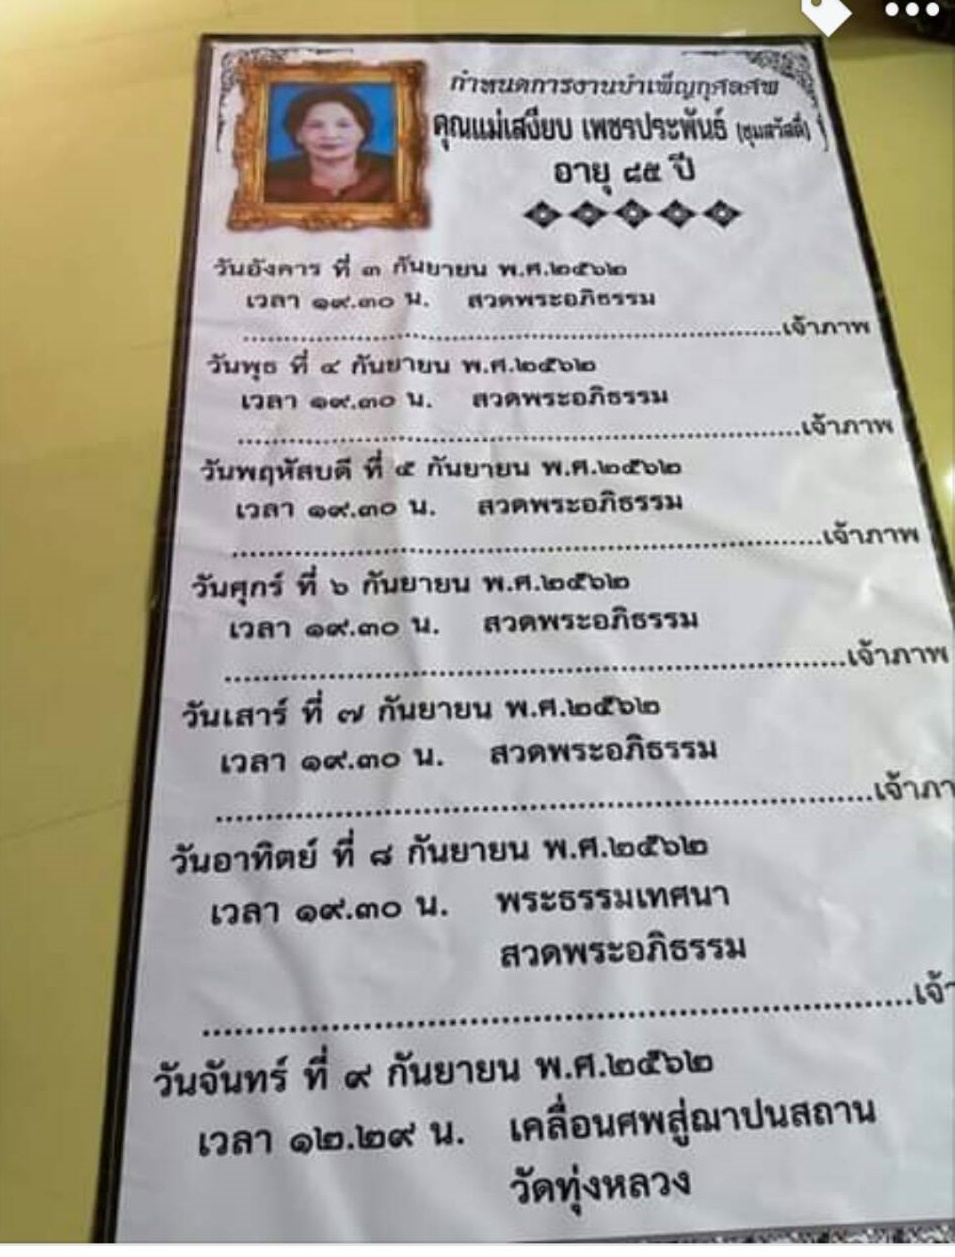 กำหนดการงานบำเพ็ญกุศลศพ
คุณแม่เสงี่ยบ เพชรประพันธ์ (ชุมสวัสดิ์)
อายุ ๘๕ ปี
วันอังคาร ที่ ๓ กันยายน พ.ศ.๒๕๖๒
เวลา ๑๙.๓๐ น. สวดพระอภิธรรม
..........เจ้าภาพ
วันพุธ ที่ ๔ กันยายน พ.ศ.๒๕๖๒
เวลา ๑๙.๓๐ น. สวดพระอภิธรรม
..........เจ้าภาพ
วันพฤหัสบดี ที่ ๕ กันยายน พ.ศ.๒๕๖๒
เวลา ๑๙.๓๐ น. สวดพระอภิธรรม
..........เจ้าภาพ
วันศุกร์ ที่ ๖ กันยายน พ.ศ.๒๕๖๒
เวลา ๑๙.๓๐ น. สวดพระอภิธรรม
..........เจ้าภาพ
วันเสาร์ ที่ ๗ กันยายน พ.ศ.๒๕๖๒
เวลา ๑๙.๓๐ น. สวดพระอภิธรรม
..........เจ้าภา
วันอาทิตย์ ที่ ๘ กันยายน พ.ศ.๒๕๖๒
เวลา ๑๙.๓๐ น. พระธรรมเทศนา
สวดพระอภิธรรม
..........เจ้า
วันจันทร์ ที่ ๙ กันยายน พ.ศ.๒๕๖๒
เวลา ๑๒.๒๙ น. เคลื่อนศพสู่ฌาปนสถาน
วัดทุ่งหลวง